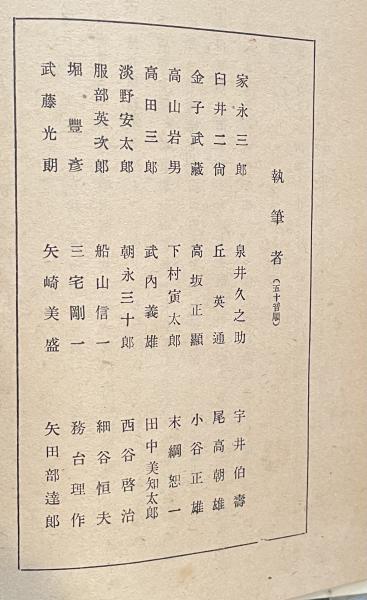 執筆者（五十音順）
家永三郎 泉井久之助 宇井伯壽
臼井二尙 丘英通 尾高朝雄
金子武藏 高坂正顯 小谷正雄
高山岩男 下村寅太郎 末綱恕一
高田三郎 武內義雄 田中美知太郎
淡野安太郎 朝永三十郎 西谷啓治
服部英次郎 船山信一 細谷恒夫
堀豐彥 三宅剛一 務台理作
武藤光朗 矢崎美盛 矢田部達郎